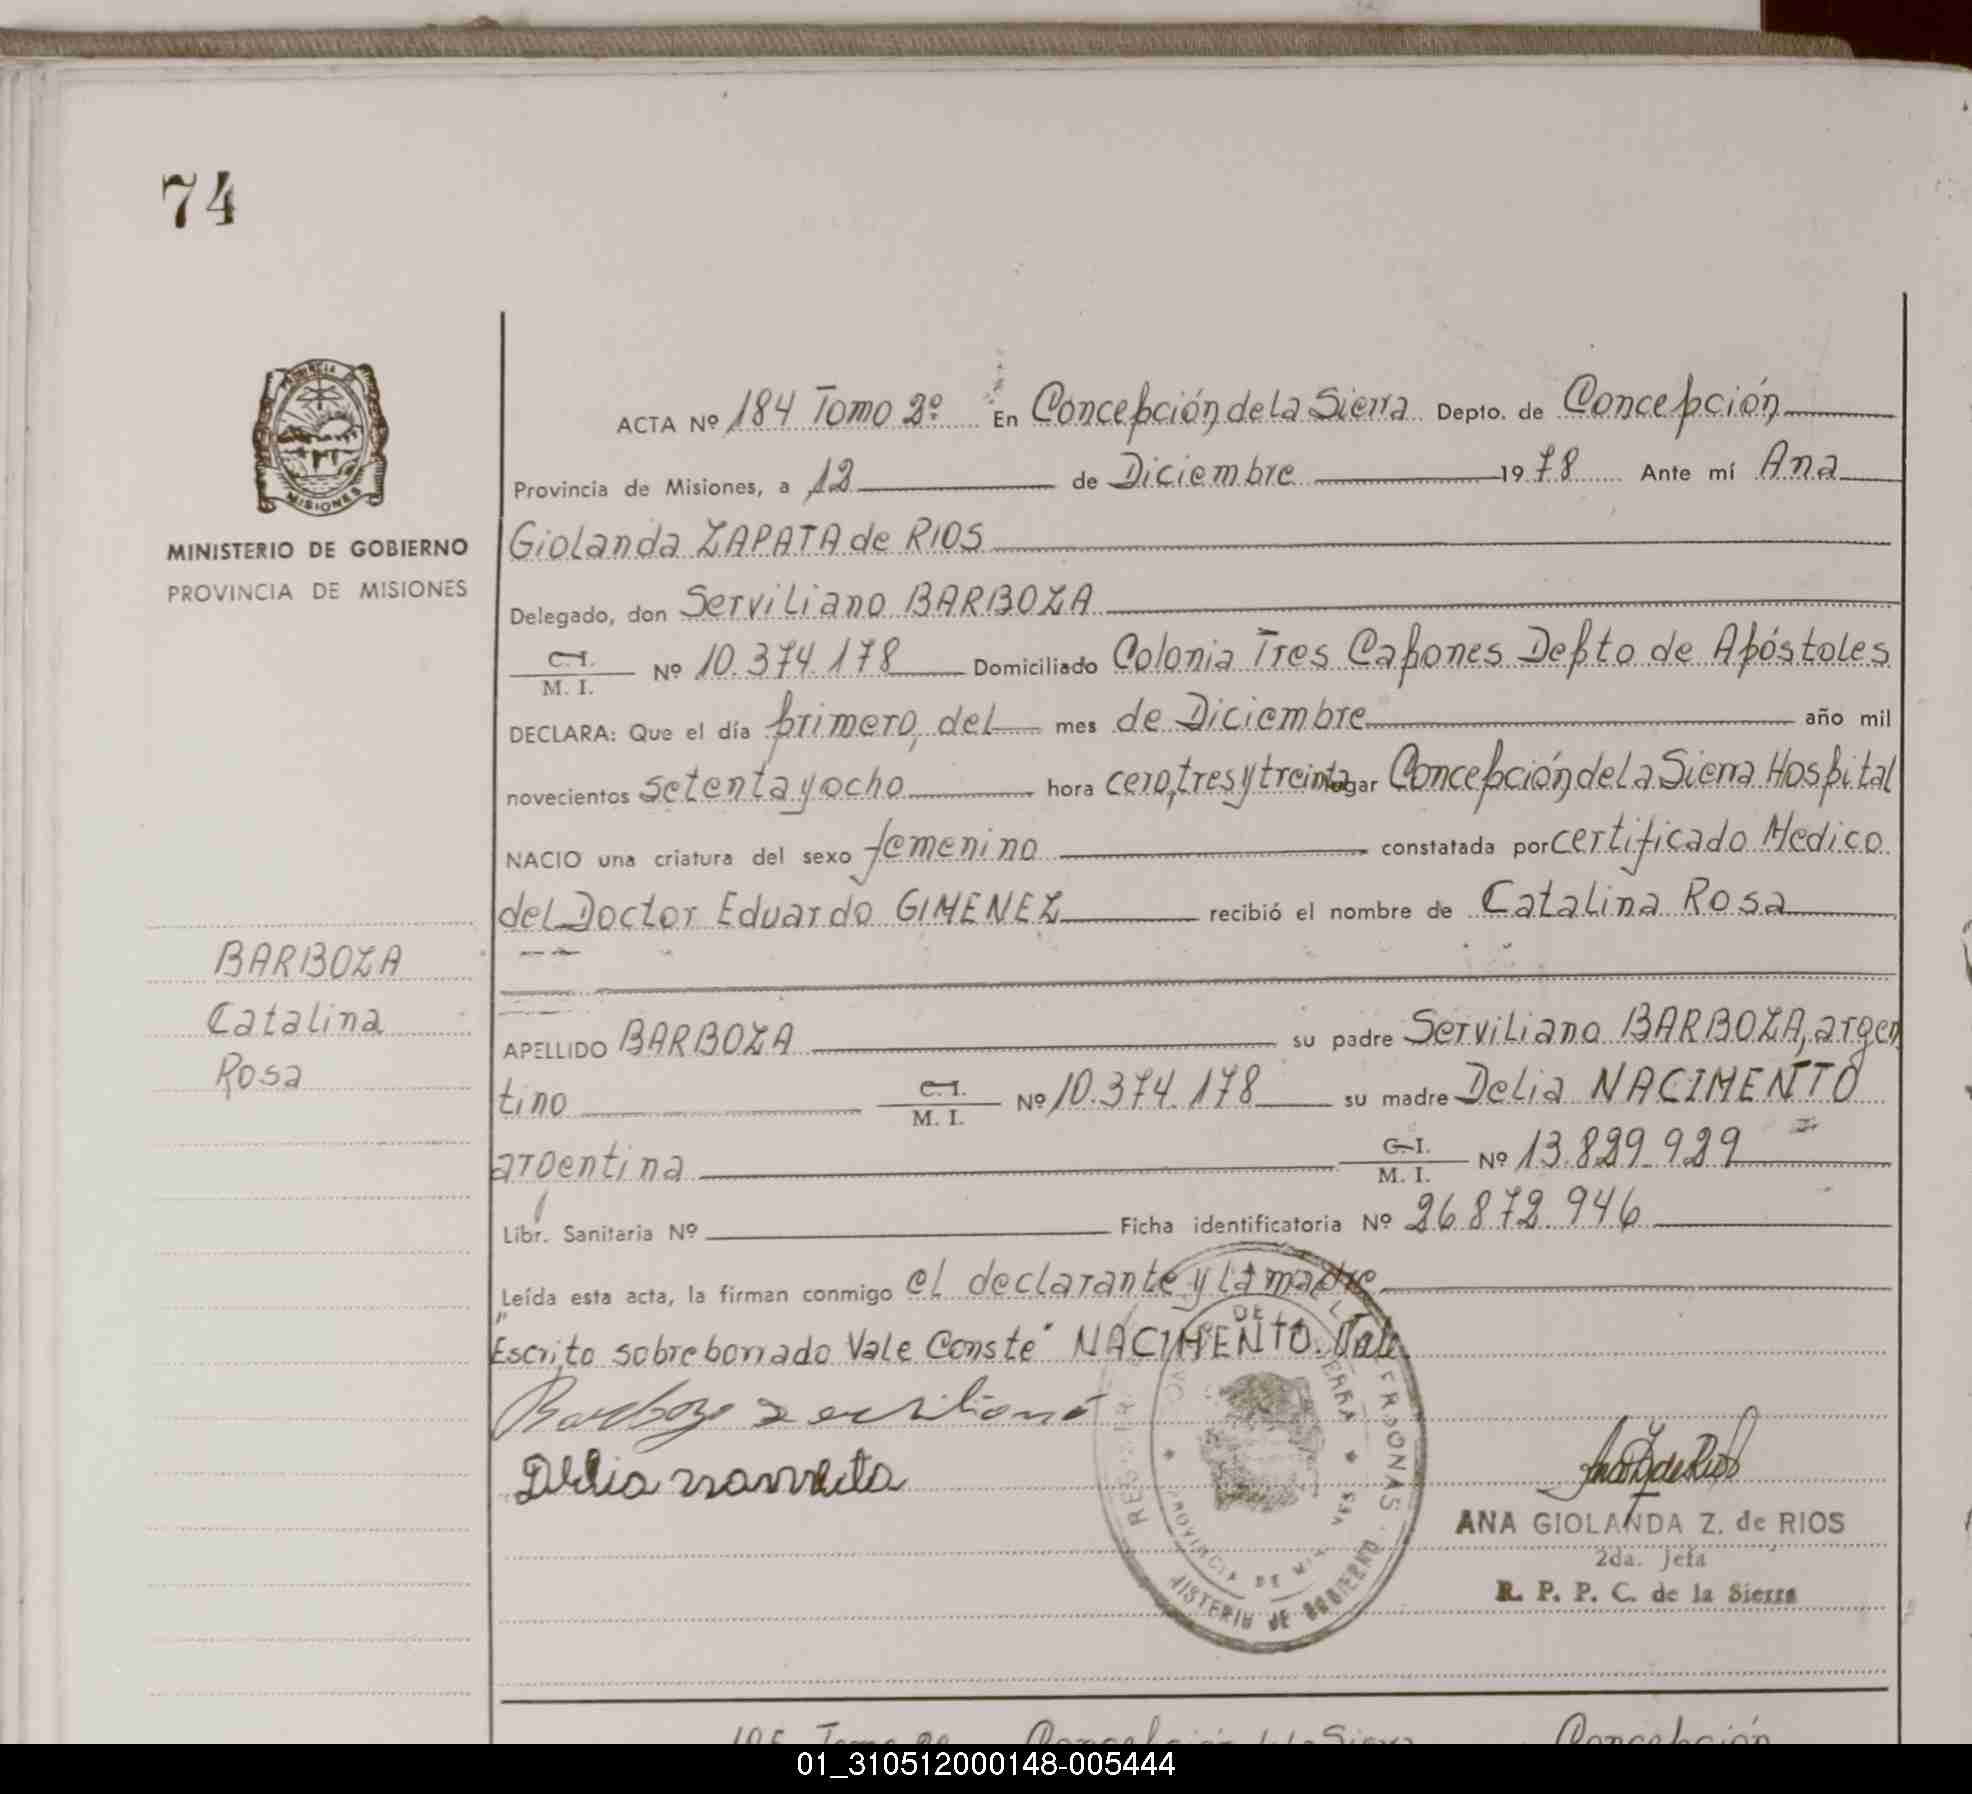 74
PROVINCIA DE
MISIONES
MINISTERIO DE GOBIERNO
PROVINCIA DE MISIONES
BARBOZA
Catalina
Rosa
ACTA Nº 184 Tomo 2º En Concepción de la Sierra Depto. de Concepción
Provincia de Misiones, a 12 de Diciembre 1978 Ante mí Ana
Giolanda ZAPATA de RIOS
Delegado, don Serviliano BARBOZA
C.I. / M.I. Nº 10.374.178 Domiciliado Colonia Tres Capones Depto de Apóstoles
DECLARA: Que el día primero, del mes de Diciembre año mil
novecientos setenta y ocho hora cero, tres y treinta lugar Concepción de la Sierra Hospital
NACIO una criatura del sexo femenino constatada por certificado Medico
del Doctor Eduardo GIMENEZ recibió el nombre de Catalina Rosa
APELLIDO BARBOZA su padre Serviliano BARBOZA, argen
tino C.I. / M.I. Nº 10.374.178 su madre Delia NACIMENTO
argentina C.I. / M.I. Nº 13.829.929
Libr. Sanitaria Nº Ficha identificatoria Nº 26.872.946
Leída esta acta, la firman conmigo el declarante y la madre
"Escrito sobreborrado Vale Conste" NACIMENTO. Vale.
Barboza Serviliano
Delia
ANA GIOLANDA Z. de RIOS
2da. Jefa
R. P. P. C. de la Sierra
PROVINCIA DE
MINISTERIO DE GOBIERNO
Tomo 2º Concepción de la Sierra Concepción
01_310512000148-005444